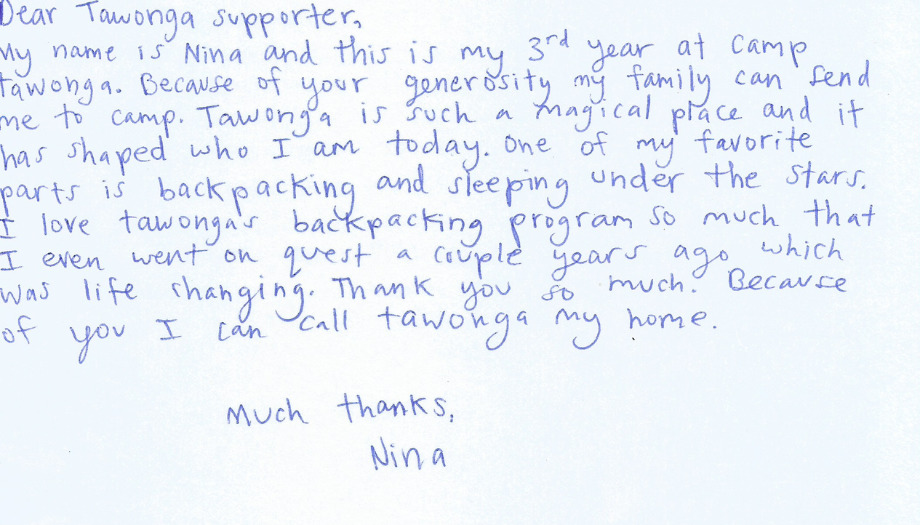 Dear Tawonga supporter,
My name is Nina and this is my 3rd year at camp
tawonga. Because of your generosity my family can send
me to camp. Tawonga is such a magical place and it
has shaped who I am today. One of my favorite
parts is backpacking and sleeping under the stars.
I love tawonga's backpacking program so much that
I even went on quest a couple years ago which
was life changing. Thank you so much. Because
of you I can call tawonga my home.
Much thanks,
Nina